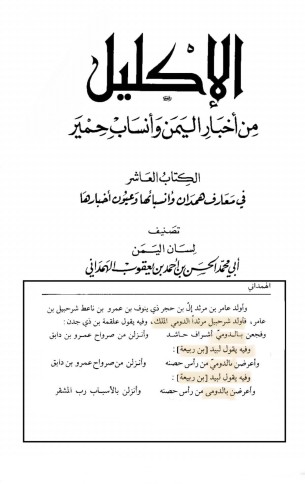 الإكليل
من أخبار اليمن وأنساب حمير
الكتاب العاشر
في معارف همدان وأنسابها وعيون أخبارها
تصنيف
لسان اليمن
أبي محمد الحسن بن أحمد بن يعقوب الهمداني
الهمداني
وأولد عامر بن مرثد إلّ بن حجر ذي ينوف بن عمرو بن ناعط شرحبيل بن
عامر، فأولد شرحبيل مرثداً الدومي الملك، وفيه يقول علقمة بن ذي جدن:
وفجعن بالدوميّ أشراف حاشد وأنزلن من صرواح عمرو بن دابق
وفيه يقول لبيد [بن ربيعة]:
وأعرضن بالدوميّ من رأس حصنه وأنزلن من صرواح عمرو بن دابق
وفيه يقول لبيد [بن ربيعة]:
وأعرضن بالدومى من رأس حصنه وأنزلن بالأسباب رب المشقر